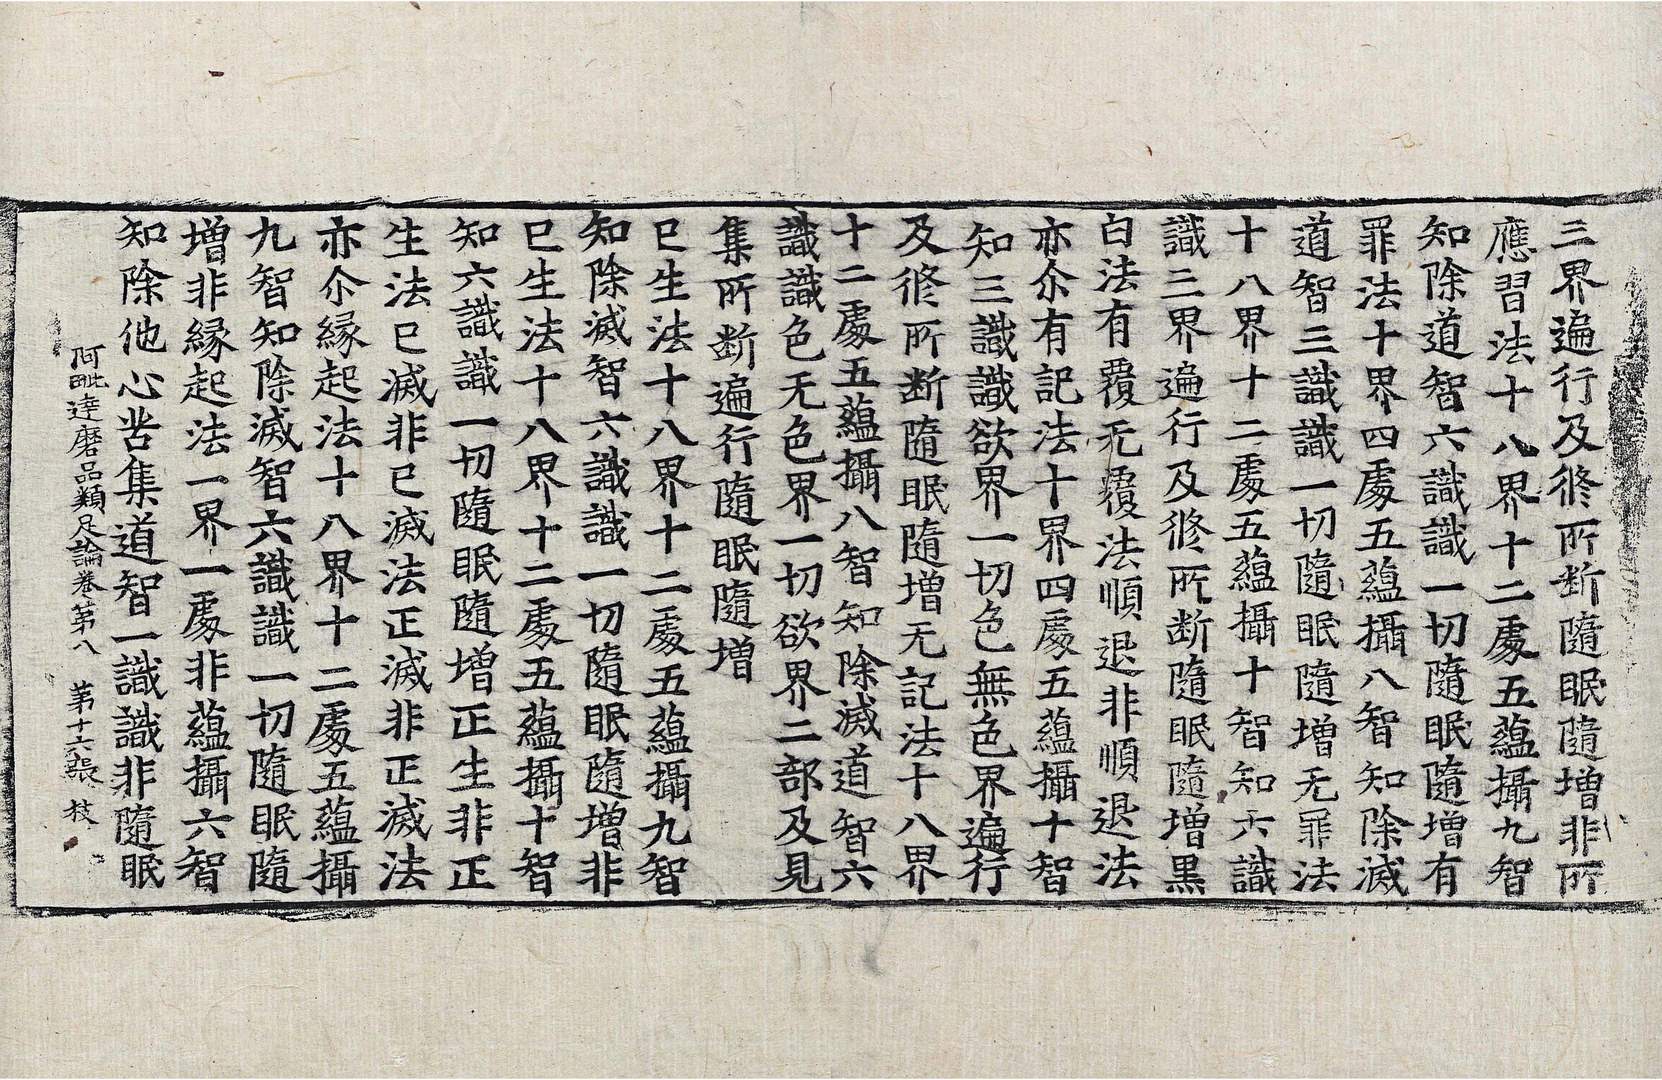 三界遍行及修所断隨眠隨增非所
應習法十八界十二處五蘊攝九智
知除道智六識識一切隨眠隨增有
罪法十界四處五蘊攝八智知除滅
道智三識識一切隨眠隨增无罪法
十八界十二處五蘊攝十智知六識
識三界遍行及修所断隨眠隨增黒
白法有覆无覆法順退非順退法
亦尒有記法十界四處五蘊攝十智
知三識識欲界一切色無色界遍行
及修所断隨眠隨增无記法十八界
十二處五蘊攝八智知除滅道智六
識識色无色界一切欲界二部及見
集所断遍行隨眠隨增
已生法十八界十二處五蘊攝九智
知除滅智六識識一切隨眠隨增非
已生法十八界十二處五蘊攝十智
知六識識一切隨眠隨增正生非正
生法已滅非已滅法正滅非正滅法
亦尒緣起法十八界十二處五蘊攝
九智知除滅智六識識一切隨眠隨
增非緣起法一界一處非蘊攝六智
知除他心苦集道智一識識非隨眠
阿毗達磨品類足論卷第八 第十六張 枝